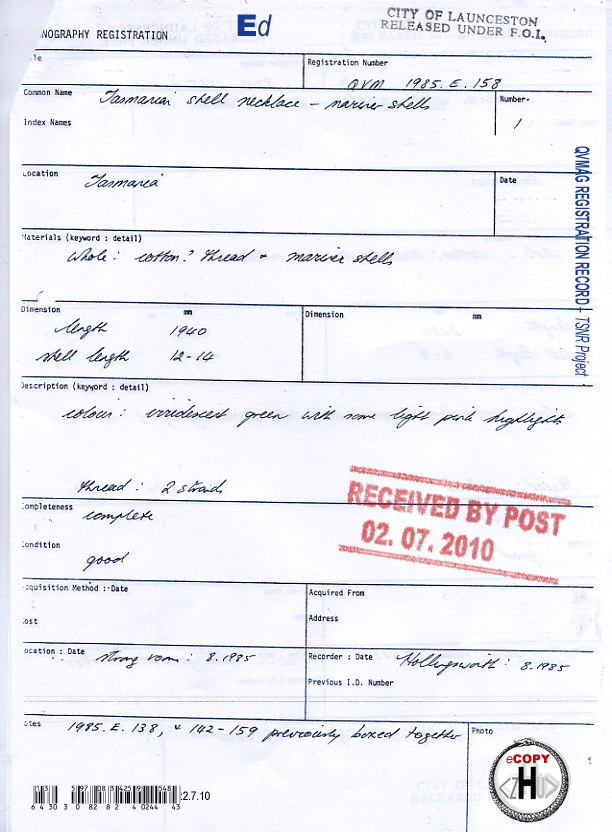 Ed
CITY OF LAUNCESTON
RELEASED UNDER F.O.I.
NOGRAPHY REGISTRATION
Registration Number
QVM 1985.E.158
Common Name Tasmanian shell necklace - mariner shells
Number
1
Index Names
Location
Tasmania
Date
QVMAG REGISTRATION RECORD - TSNR Project
Materials (keyword : detail)
Whole: cotton? thread + mariner shells
Dimension mm
Dimension mm
length 1940
shell length 12-14
Description (keyword : detail)
colour: iridescent green with some light pink highlights
thread: 2 strands
RECEIVED BY POST
02. 07. 2010
Completeness
complete
Condition
good
cquisition Method : Date
Acquired From
ost
Address
ocation : Date strong room: 8.1985
Recorder : Date Hollingsworth: 8.1985
Previous I.D. Number
otes 1985.E.138, + 142-159 previously boxed together
Photo
eCOPY
H
2.7.10